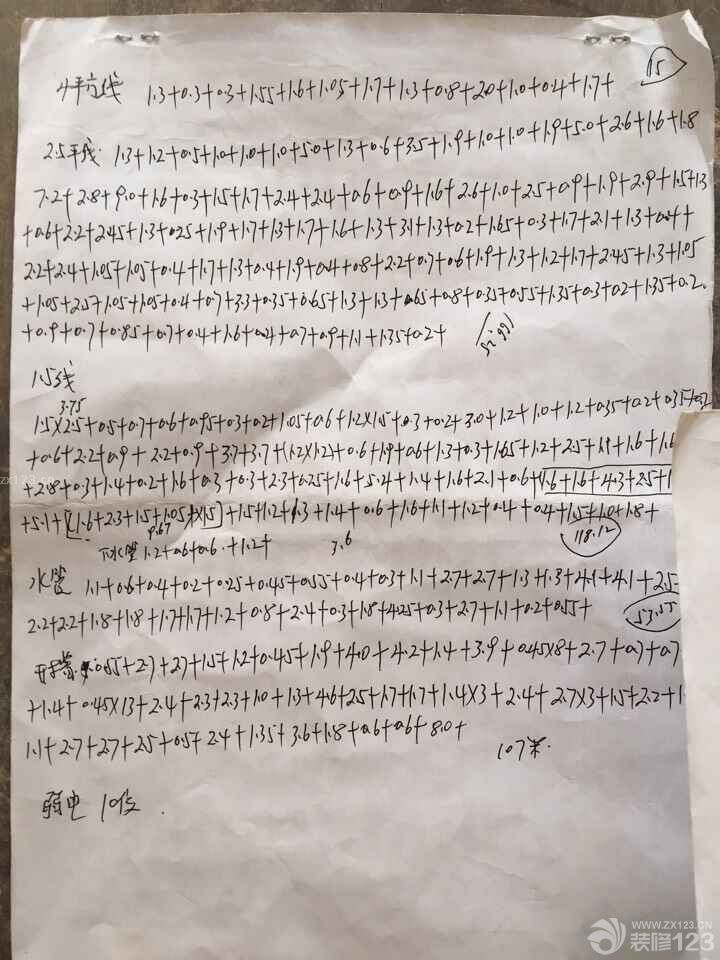 4平方线 1.3+0.3+0.3+1.55+1.6+1.05+1.7+1.3+0.8+2.0+1.0+0.4+1.7+
15
2.5平线 1.3+1.2+0.5+1.0+1.0+1.0+5.0+1.3+0.6+3.5+1.9+1.0+1.0+1.9+5.0+2.6+1.6+1.8
7.2+2.8+9.0+1.6+0.3+1.5+1.7+2.4+2.4+0.6+0.9+1.6+2.6+1.0+2.5+0.9+1.9+2.9+1.5+1.3
+0.6+2.2+2.45+1.3+0.25+1.9+1.7+1.3+1.7+1.6+1.3+3.1+1.3+0.2+1.65+0.3+1.7+2.1+1.3+0.4+
2.2+2.4+1.05+1.05+0.4+1.7+1.3+0.4+1.9+0.4+0.8+2.2+0.7+0.6+1.9+1.3+1.2+1.7+2.45+1.3+1.05
+1.05+2.5+1.05+1.05+0.4+0.7+3.3+0.35+0.65+1.3+1.3+0.65+0.8+0.35+0.55+1.35+0.3+0.2+1.35+0.2
+0.9+0.7+0.85+0.7+0.4+1.6+0.4+0.7+0.9+1.1+1.35+0.2+
1.5线
3.75
1.5×2.5+0.5+0.7+0.6+0.95+0.3+0.2+1.05+0.6+1.2×1.5+0.3+0.2+3.0+1.2+1.0+1.2+0.35+0.2+0.35+0.2
+0.6+2.2+0.9+2.2+0.9+3.7+3.7+(1.2×1.2)+0.6+1.9+0.6+1.3+0.3+1.65+1.2+2.5+1.9+1.6+1.6
+2.8+0.3+1.4+0.2+1.6+0.3+0.3+2.3+0.25+1.6+5.2+1.4+1.6+2.1+0.6+1.6+1.6+4.3+2.5+1
+5.1+[1.6+2.3+1.5+1.05)×1.5]+1.5+1.2+1.3+1.4+0.6+1.6+1.1+1.2+0.4+0.4+1.5+1.0+1.8+
9.67
下水管 1.2+0.6+0.6+1.2+
3.6
118.12
水管 1.1+0.6+0.4+0.2+0.25+0.45+0.55+0.4+0.3+1.1+2.7+2.7+1.3+1.3+4.1+4.1+2.5
2.2+2.2+1.8+1.8+1.7+1.7+1.2+0.8+2.4+0.3+1.8+4.25+0.3+2.7+1.1+0.2+0.55+
53.55
0.55+2.7+2.7+1.5+1.2+0.45+1.9+4.0+4.2+1.4+3.9+0.45×8+2.7+0.7+0.7
+1.4+0.45×13+2.4+2.3+2.3+1.0+1.3+4.6+2.5+1.7+1.7+1.4×3+2.4+2.7×3+1.5+2.2+1
1.1+2.7+2.7+2.5+0.5+2.4+1.35+3.6+1.8+0.6+0.6+8.0+
107米
弱电 10位
WWW.ZX123.CN
装修123